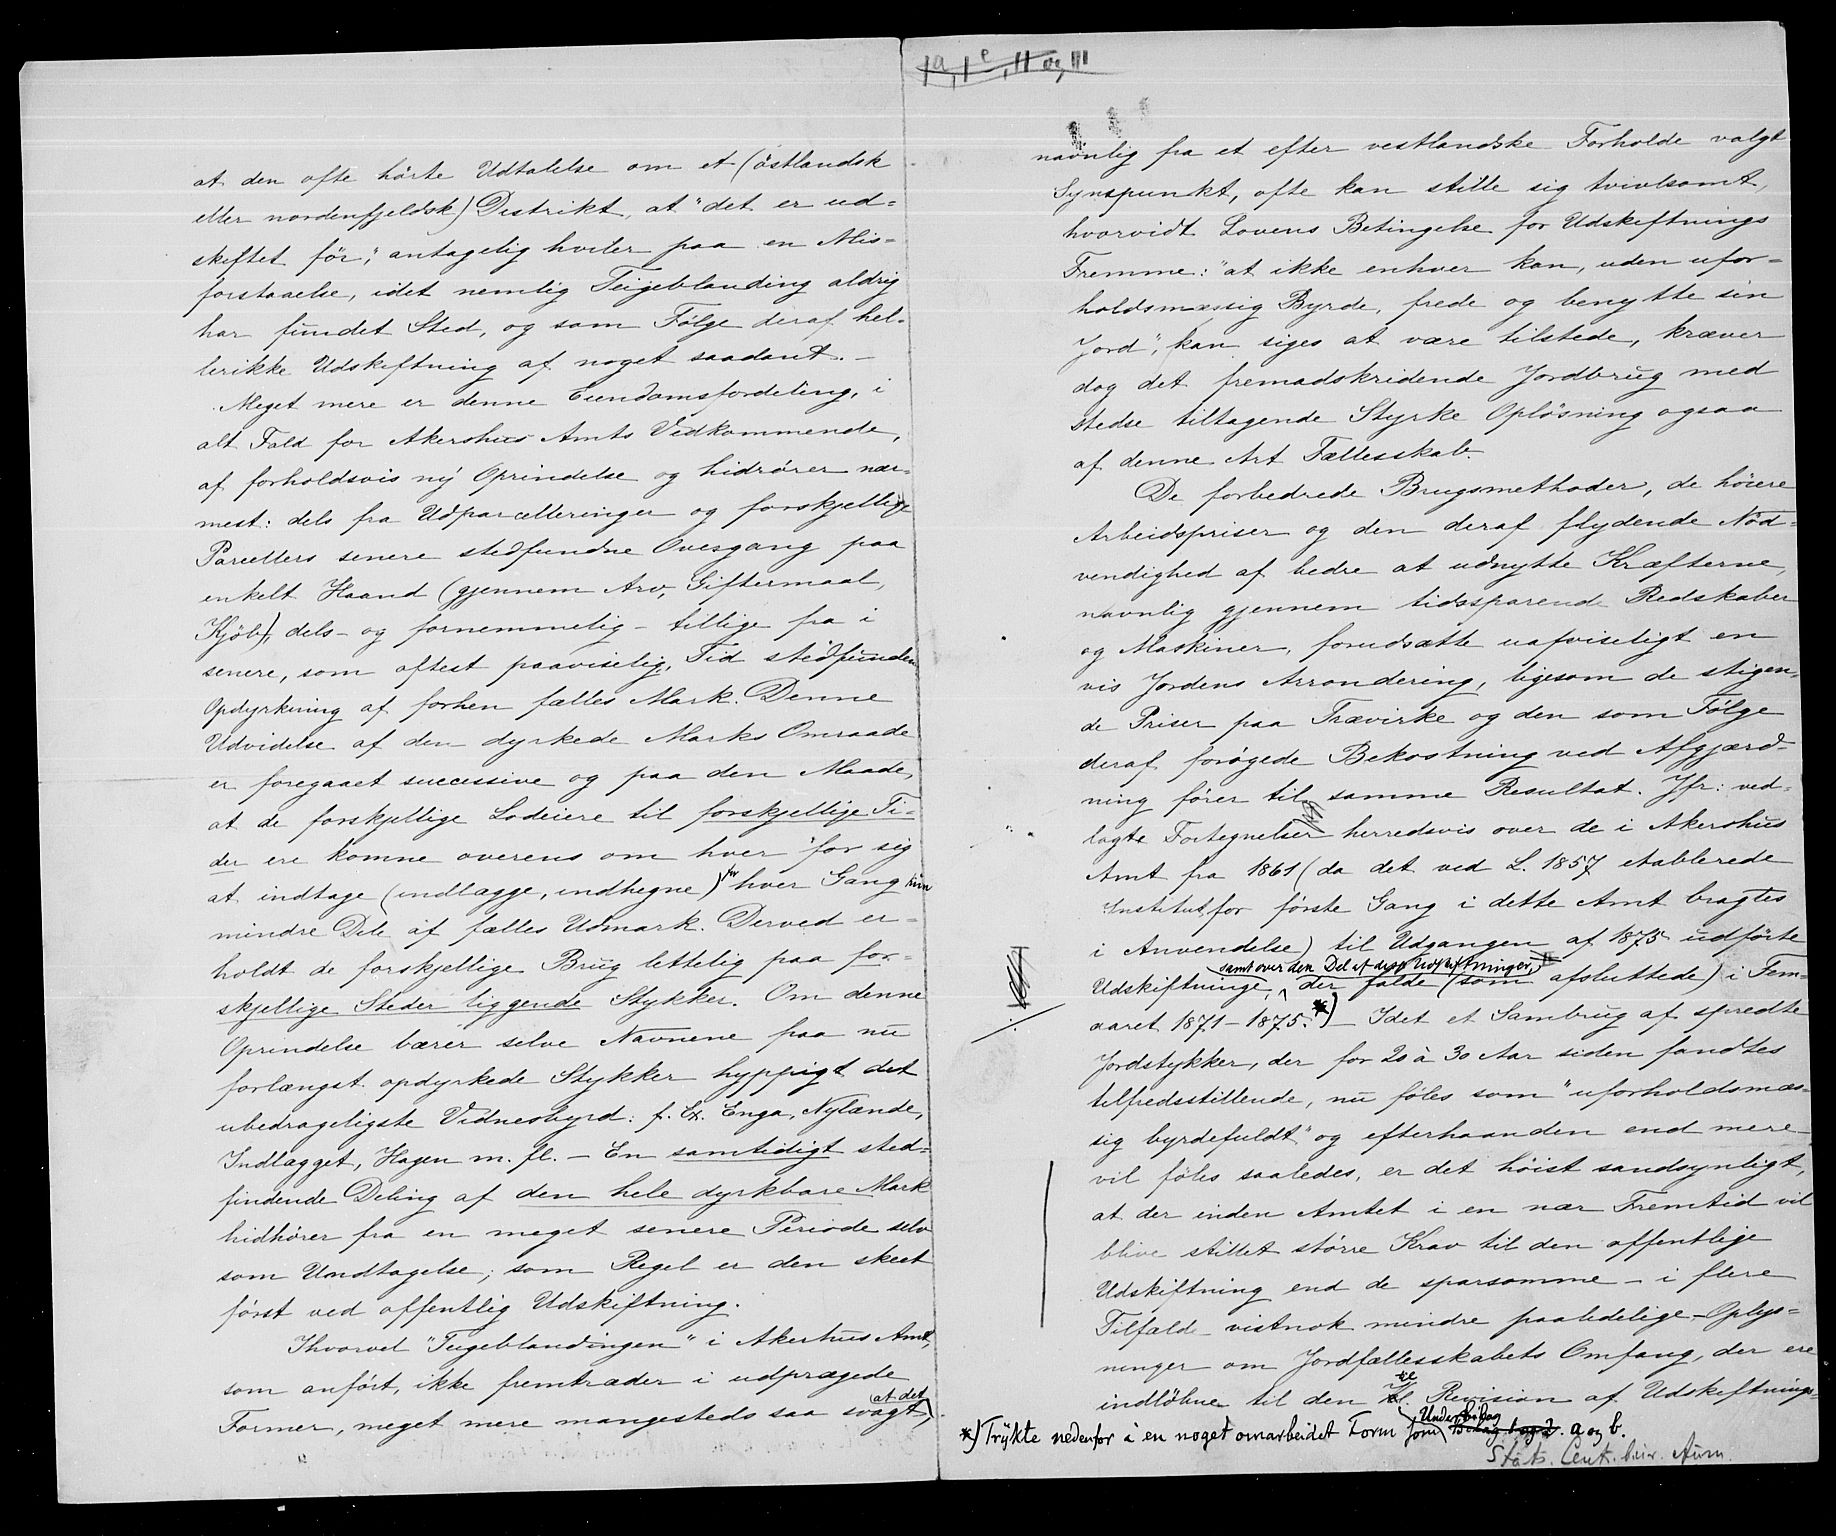 at den ofte hørte Udtalelse om et (østlandsk
eller nordenfjeldsk) Distrikt, at "det er ud-
skiftet før", antagelig hviler paa en Mis-
forstaaelse, idet nemlig Teigeblanding aldrig
har fundet Sted, og som Følge deraf hel-
lerikke Udskiftning af noget saadant. -
Meget mere er denne Eiendomsfordeling, i
alt Fald for Akershus Amts Vedkommende,
af forholdsvis ny Oprindelse og hidrører nær-
mest: dels fra Udparcelleringer og forskjellige
Parcellers senere stedfundne Overgang paa
enkelt Haand (gjennem Arv, Giftermaal,
Kjøb), dels - og fornemmelig - tillige fra i
senere, som oftest paaviselig, Tid stedfunden
Opdyrkning af forhen fælles Mark. Denne
Udvidelse af den dyrkede Marks Omraade
er foregaaet successive og paa den Maade,
at de forskjellige Lodeiere til forskjellige Ti-
der ere komne overens om hver for sig
at indtage (indlægge, indhegne) for hver Gang kun
mindre Dele af fælles Udmark. Derved er-
holdt de forskjellige Brug lettelig paa for-
skjellige Steder liggende Stykker. Om denne
Oprindelse bærer selve Navnene paa nu
forlængst opdyrkede Stykker hyppigt det
ubedrageligste Vidnesbyrd: f. Ex. Enga, Nylænde,
Indlægget, Hagen m. fl. - En samtidigt sted-
findende Deling af den hele dyrkbare Mark
hidhører fra en meget senere Periode selv
som Undtagelse; som Regel er den skeet
først ved offentlig Udskiftning.
Ihvorvel "Teigeblandingen" i Akershus Amt,
som anført, ikke fremtræder i udprægede
Former, meget mere mangesteds saa svagt, at det
1a, 1e, II og III
navnlig fra et efter vestlandske Forholde valgt
Synspunkt, ofte kan stille sig tvivlsomt,
hvorvidt Lovens Betingelse for Udskiftnings
Fremme: "at ikke enhver kan, uden ufor-
holdsmæssig Byrde, frede og benytte sin
Jord", kan siges at være tilstede, kræver
dog det fremadskridende Jordbrug med
stedse tiltagende Styrke Opløsning ogsaa
af denne Art Fællesskab.
De forbedrede Brugsmethoder, de høiere
Arbeidspriser og den deraf flydende Nød-
vendighed af bedre at udnytte Kræfterne,
navnlig gjennem tidssparende Redskaber
og Maskiner, forudsætte uafviseligt en
vis Jordens Arrondering, ligesom de stigen-
de Priser paa Trævirke og den som Følge
deraf forøgede Bekostning ved Afgjærd-
ning fører til samme Resultat. Jfr: ved-
lagte Fortegnelser herredsvis over de i Akershus
Amt fra 1861 (da det ved L. 1857 etablerede
Institut for første Gang i dette Amt bragtes
i Anvendelse) til Udgangen af 1875 udførte
samt over den Del af disse Udskiftninger,
Udskiftninge, der falde (som afsluttede) i Fem-
aaret 1871 - 1875. *) - Idet et Sambrug af spredte
Jordstykker, der for 20 à 30 Aar siden fandtes
tilfredsstillende, nu føles som "uforholdsmæs-
sig byrdefuldt" og efterhaanden end mere
vil føles saaledes, er det høist sandsynligt,
at der inden Amtet i en nær Fremtid vil
blive stillet større Krav til den offentlige
Udskiftning end de sparsomme - i flere
Tilfælde vistnok mindre paalidelige - Oplys-
ninger om Jordfællesskabets Omfang, der ere
indløbne til den Kgl. Revision af Udskiftnings-
*) Trykte nedenfor i en noget omarbeidet Form som Underbilag a og b.
Stat. Cent.